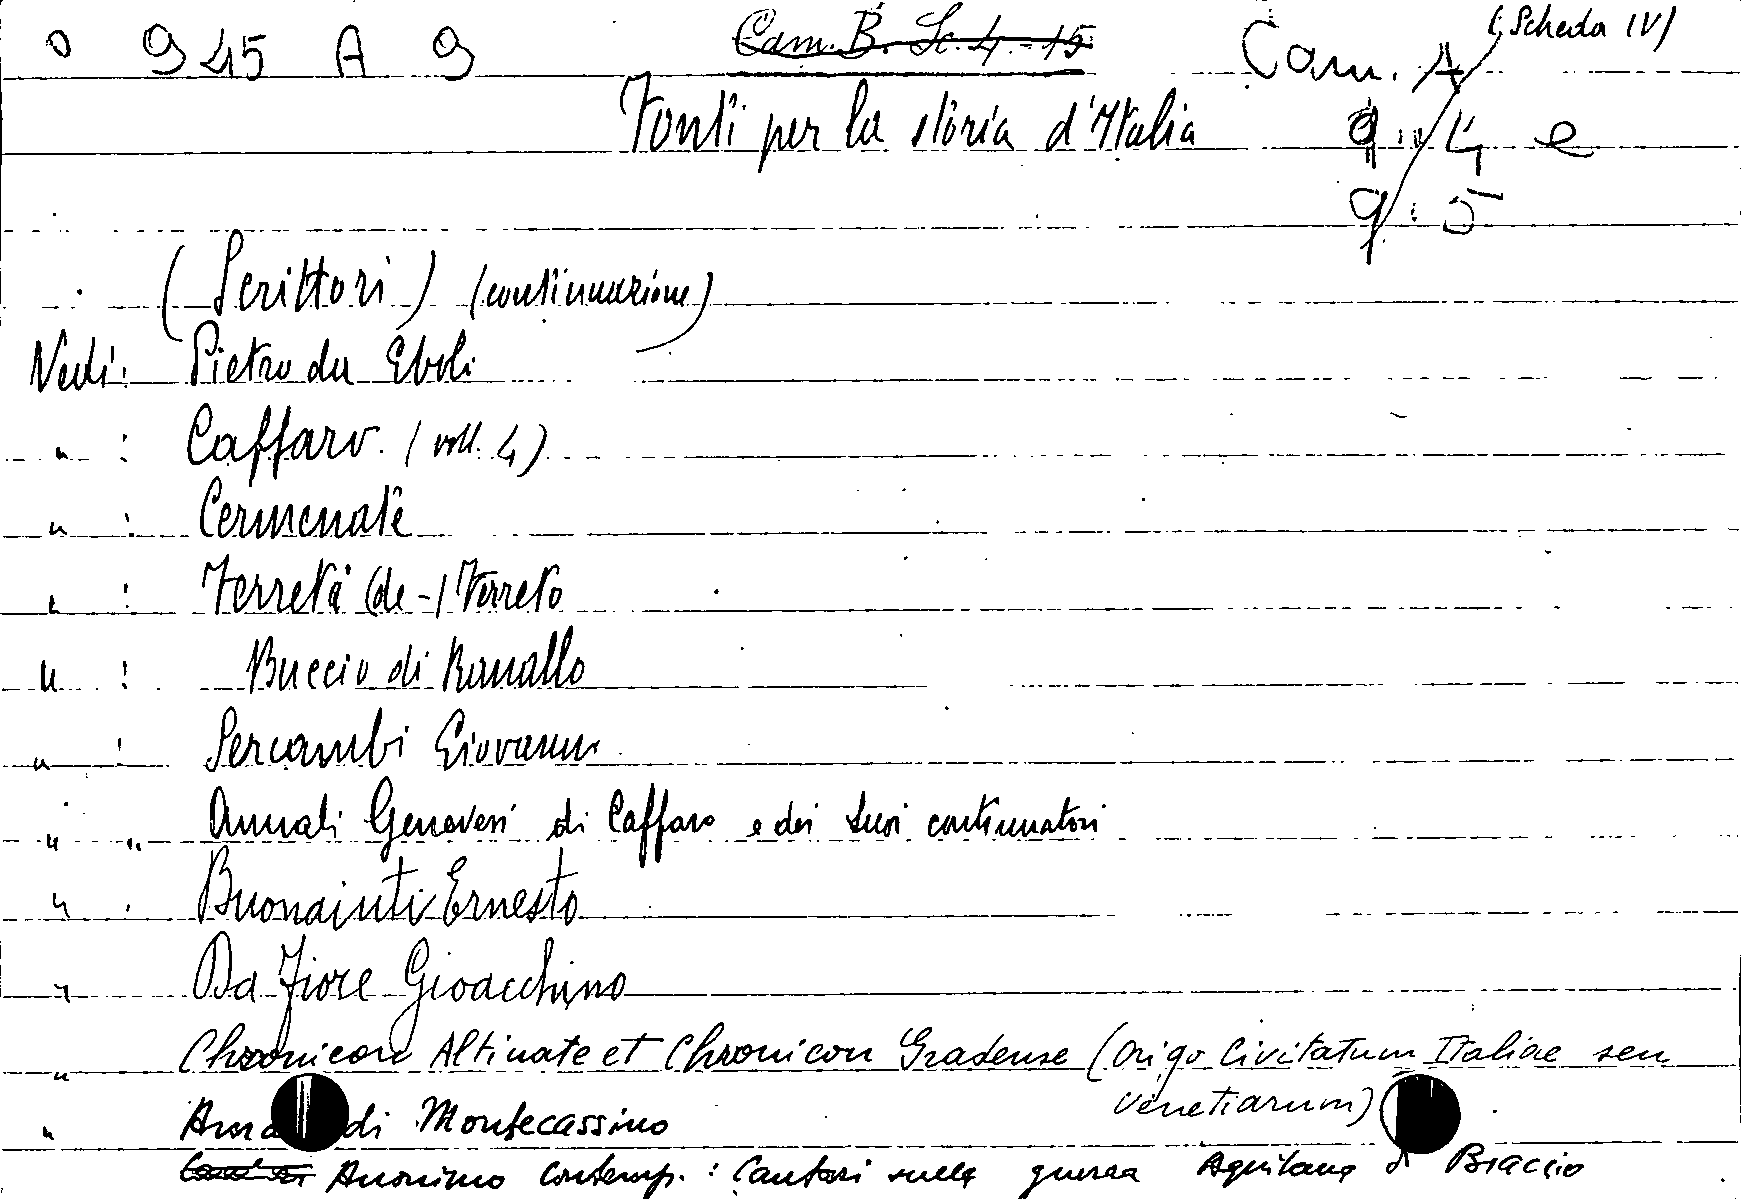 945 A 9 Cam. B. Sc. 4.-15 Cam. A (Scheda IV)
Fonti per la storia d'Italia 9. 4 e
9. 5
(Scrittori) (continuazione)
Vedi: Pietro da Eboli
" : Caffaro. (voll. 4)
" : Cermenate
" : Ferreti (de-) Ferreto
" : Buccio di Ranallo
" : Sercambi Giovanni
" " Annali Genovesi di Caffaro e dei suoi continuatori
" . Buonaiuti Ernesto
" Da Fiore Gioacchino
" Chronicon Altinate et Chronicon Gradense (Origo Civitatum Italiae seu
Venetiarum)
" di Montecassino
Anonimo contemp.: Cantari sulla guerra Aquilana di Braccio